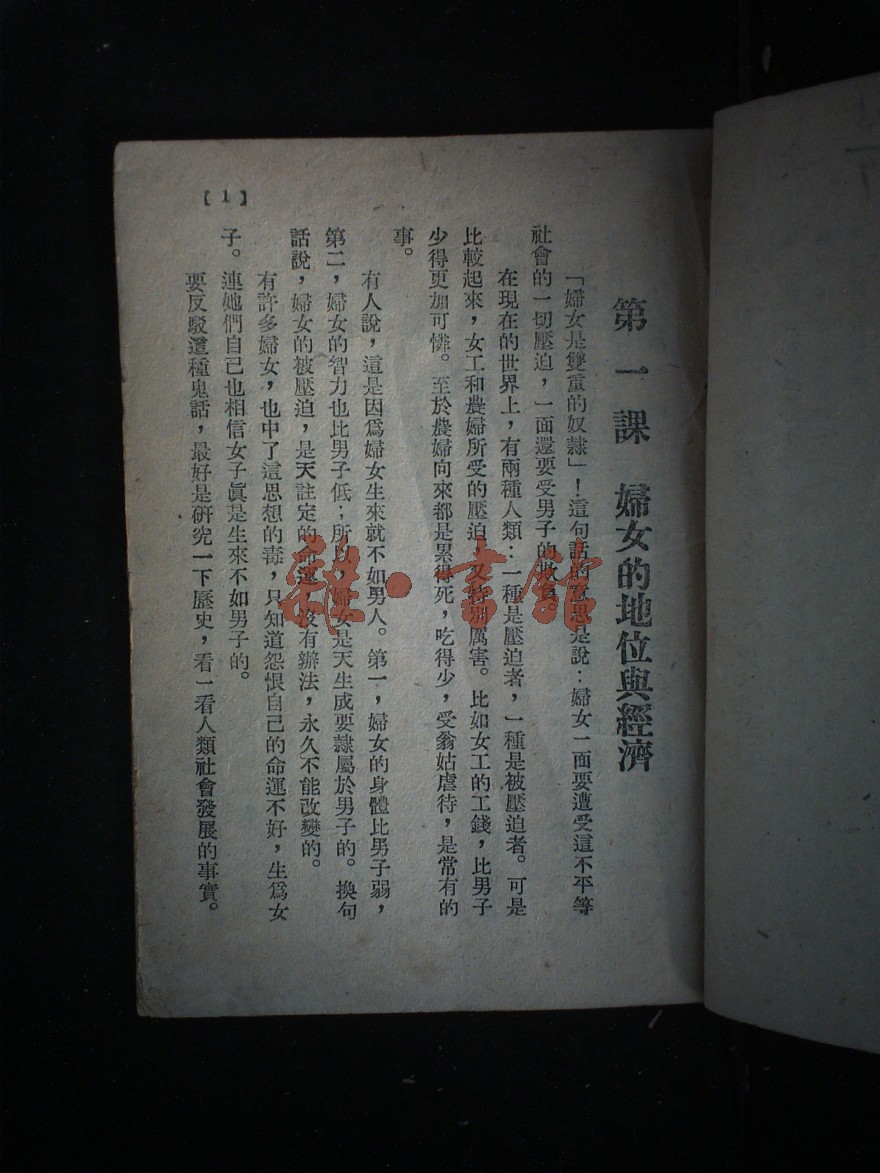 第一課 婦女的地位與經濟
「婦女是雙重的奴隸」！這句話的意思是說：婦女一面要遭受這不平等
社會的一切壓迫，一面還要受男子的
在現在的世界上，有兩種人類：一種是壓迫者，一種是被壓迫者。可是
比較起來，女工和農婦所受的壓迫，又特別厲害。比如女工的工錢，比男子
少得更加可憐。至於農婦向來都是累得死，吃得少，受翁姑虐待，是常有的
事。
有人說，這是因爲婦女生來就不如男人。第一，婦女的身體比男子弱，
第二，婦女的智力也比男子低；所以，婦女是天生成要隸屬於男子的。換句
話說，婦女的被壓迫，是天註定的命運，沒有辦法，永久不能改變的。
有許多婦女，也中了這思想的毒，只知道怨恨自己的命運不好，生爲女
子。連她們自己也相信女子眞是生來不如男子的。
要反駁這種鬼話，最好是研究一下歷史，看一看人類社會發展的事實。
【1】
雜·書館